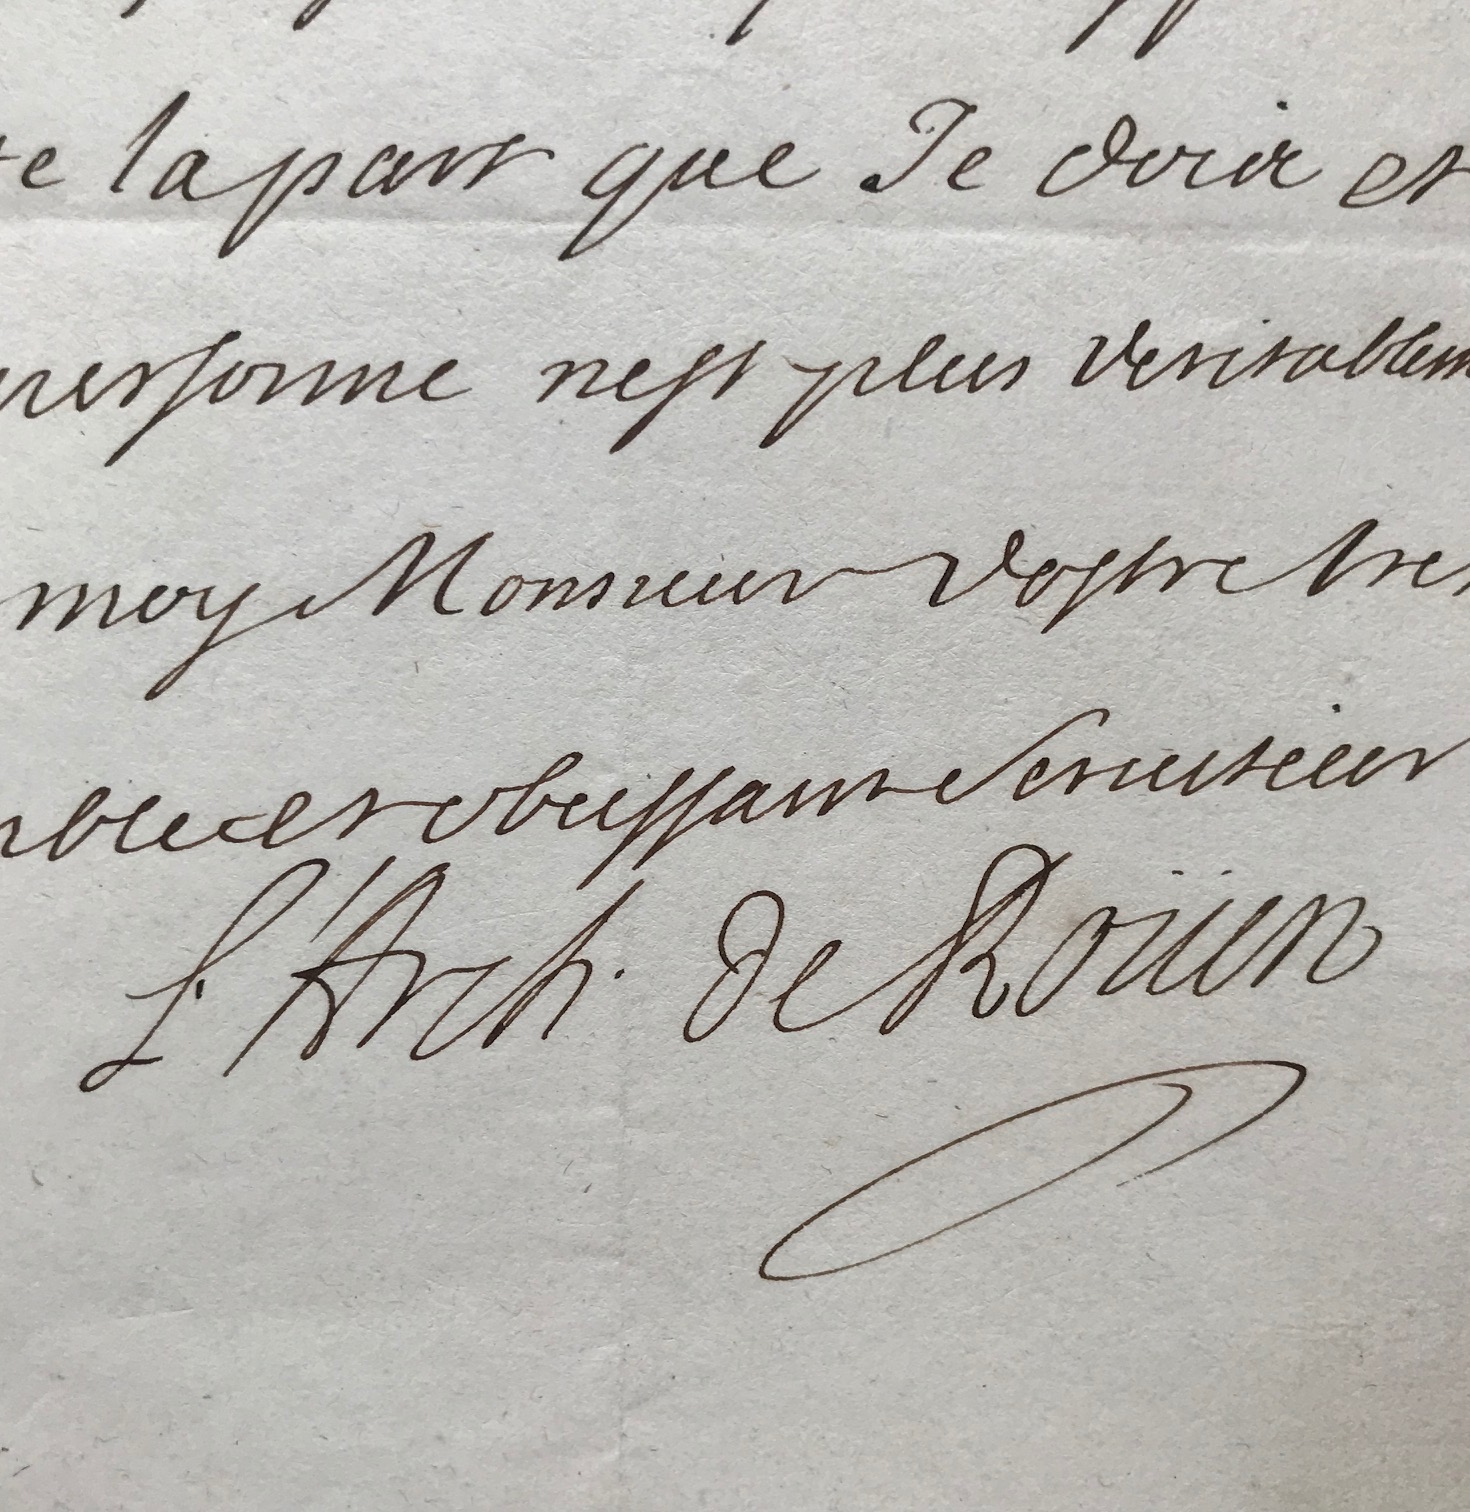 te la part que Je doia et
personne nest plus veritablem
moy Monsieur Vostre tres
mble et obeissant Serviteur
L'Arch. de Roüen